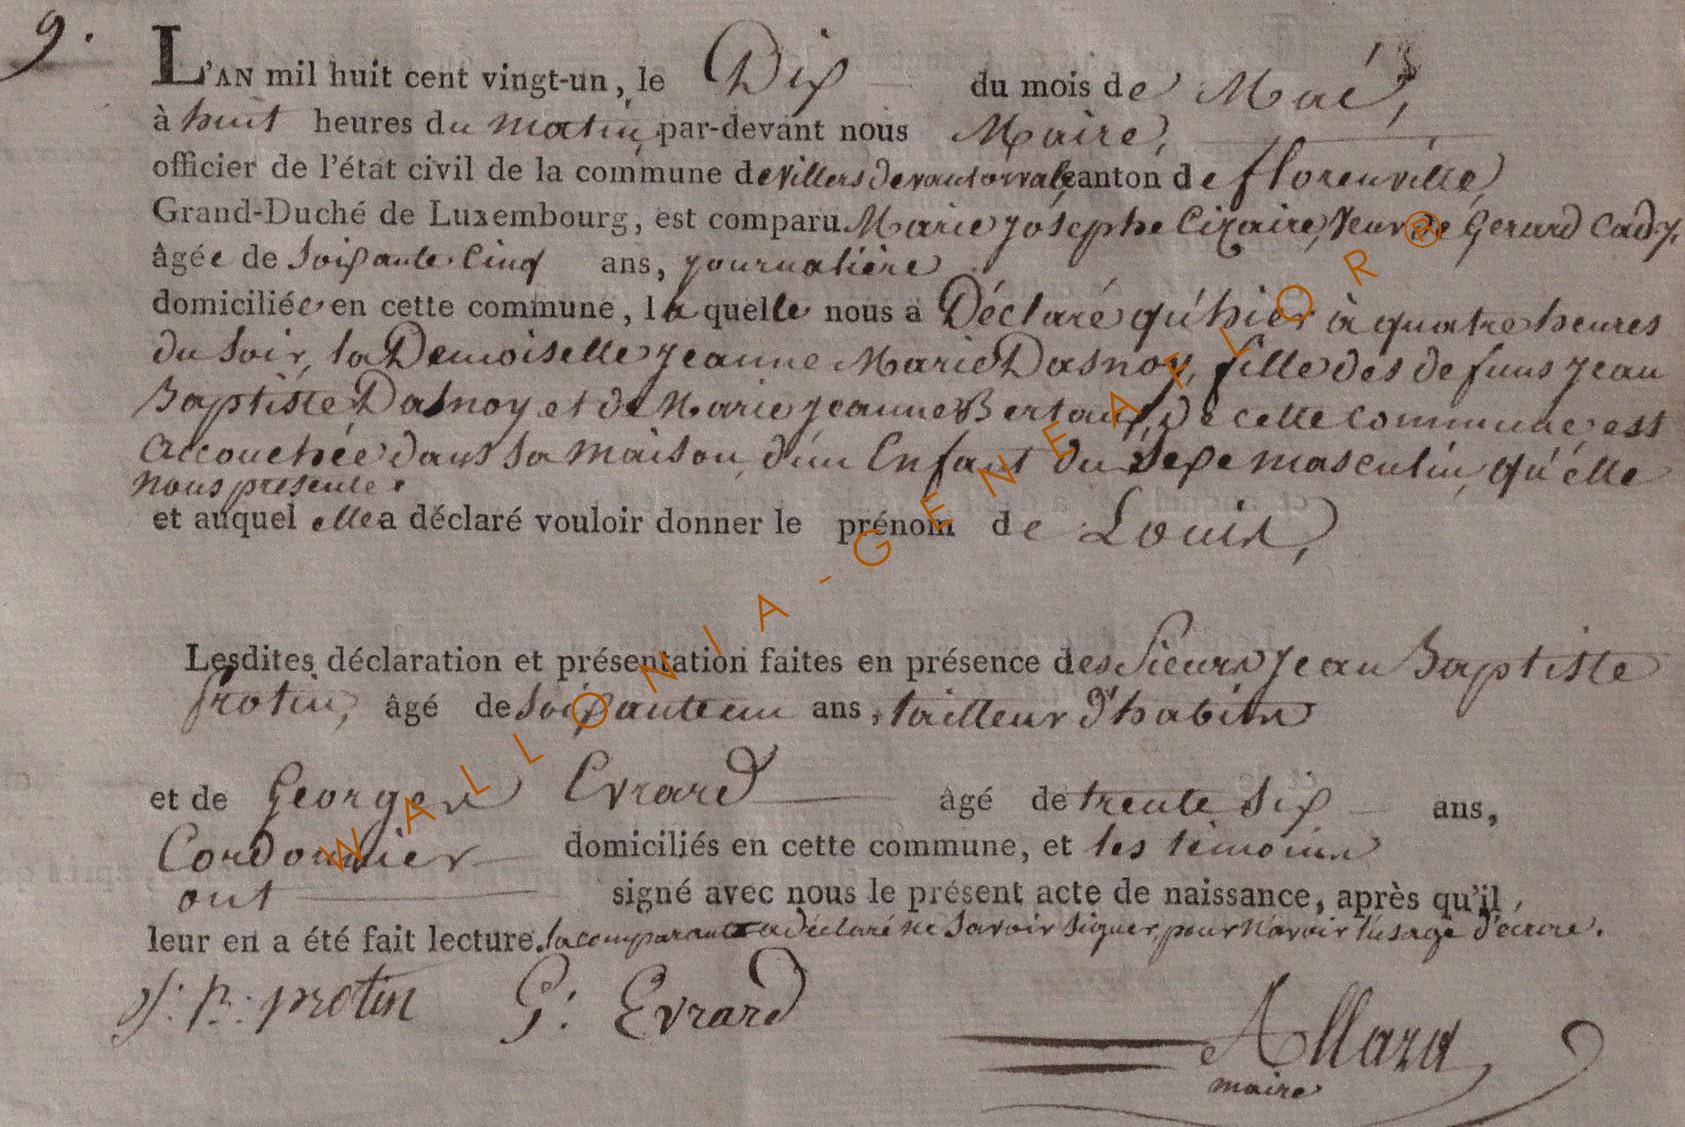 9.
L'AN mil huit cent vingt-un, le Dix du mois de Mai,
à huit heures du matin, par-devant nous Maire,
officier de l'état civil de la commune de Villers devant orval, canton de florenville,
Grand-Duché de Luxembourg, est comparu Marie Josephe Cizaire, Veuve de Gerard Cady,
âgée de Soixante Cinq ans, journalière
domiciliée en cette commune, laquelle nous a Déclaré qu'hier à quatre heures
du Soir, la Demoiselle Jeanne Marie Dasnoy, fille des defuns Jean
Baptiste Dasnoy et de Marie Jeanne de cette commune, est
accouchée dans sa maison, d'un Enfant du Sexe masculin, qu'elle
nous présente.
et auquel elle a déclaré vouloir donner le prénom de Louis,
Lesdites déclaration et présentation faites en présence des Sieurs Jean Baptiste
Protin, âgé de Soixante un ans, tailleur d'habits
et de Georges Evrard âgé de trente Six ans,
Cordonnier domiciliés en cette commune, et les témoins
ont signé avec nous le présent acte de naissance, après qu'il
leur en a été fait lecture. la comparante a déclaré ne Savoir Signer, pour n'avoir l'usage d'écrire.
J: B: protin G: Evrard
Allard
maire
WALLONIA-GENEAFLOR®